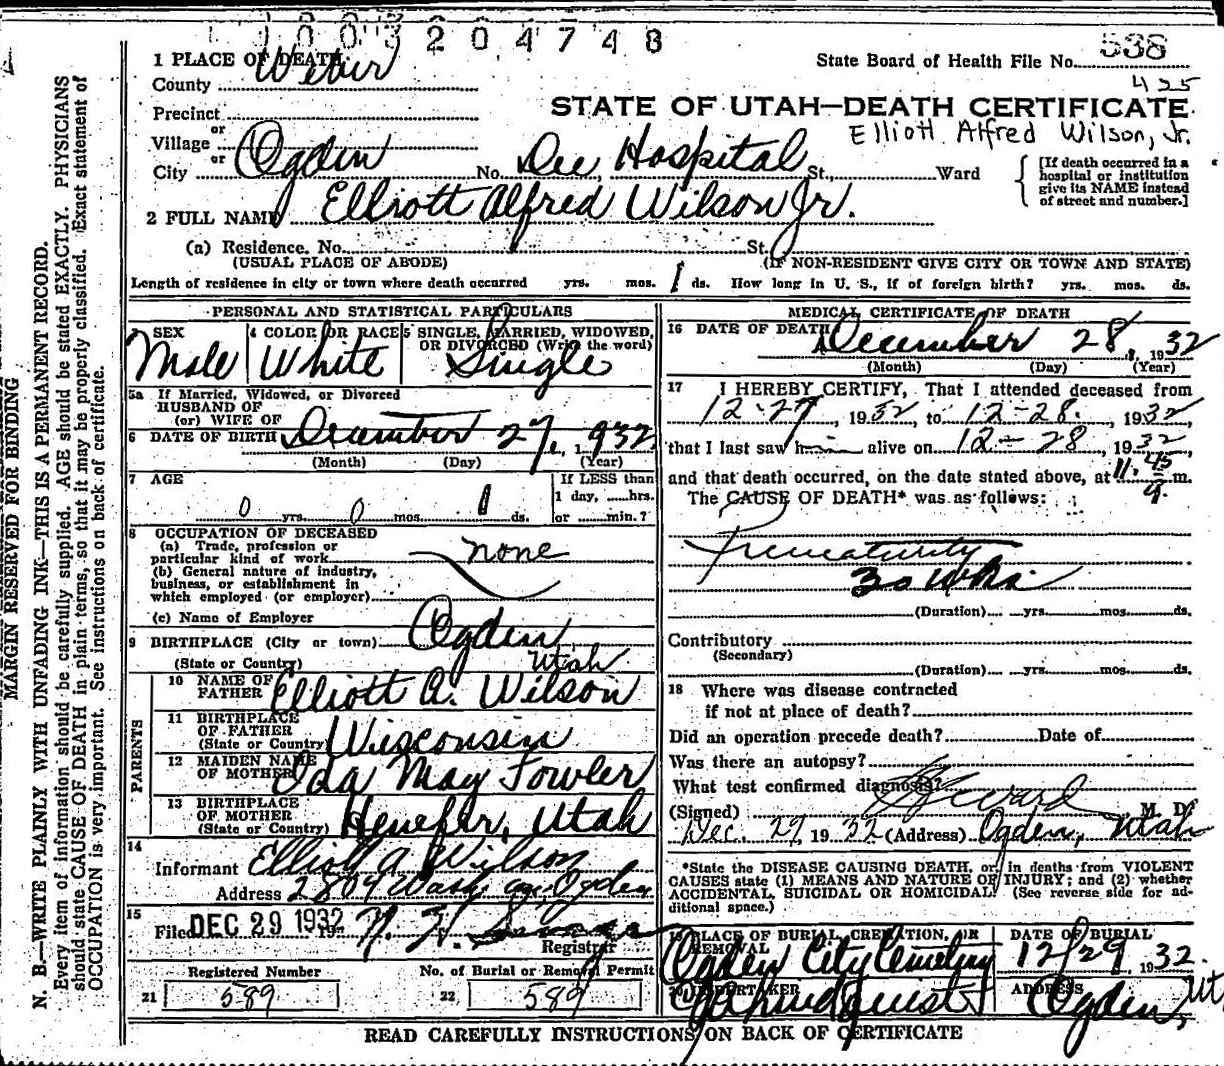 1003204748
1 PLACE OF DEATH
County Weber
State Board of Health File No. 538
425
Precinct
STATE OF UTAH—DEATH CERTIFICATE
Elliott Alfred Wilson, Jr.
or
Village
or
City Ogden No. Dee Hospital St., Ward
[If death occurred in a
hospital or institution
give its NAME instead
of street and number.]
2 FULL NAME Elliott Alfred Wilson Jr.
(a) Residence. No. St.
(USUAL PLACE OF ABODE) (IF NON-RESIDENT GIVE CITY OR TOWN AND STATE)
Length of residence in city or town where death occurred yrs. mos. 1 ds. How long in U. S., if of foreign birth? yrs. mos. ds.
PERSONAL AND STATISTICAL PARTICULARS
3 SEX 4 COLOR OR RACE 5 SINGLE, MARRIED, WIDOWED,
OR DIVORCED (Write the word)
Male White Single
5a If Married, Widowed, or Divorced
HUSBAND OF
(or) WIFE OF
6 DATE OF BIRTH December 27, 1932
(Month) (Day) (Year)
7 AGE If LESS than
1 day, ......hrs.
0 yrs. 0 mos. 1 ds. or ......min.?
8 OCCUPATION OF DECEASED
(a) Trade, profession or
particular kind of work none
(b) General nature of industry,
business, or establishment in
which employed (or employer)
(c) Name of Employer
9 BIRTHPLACE (City or town) Ogden
(State or Country) Utah
PARENTS
10 NAME OF
FATHER Elliott A. Wilson
11 BIRTHPLACE
OF FATHER
(State or Country) Wisconsin
12 MAIDEN NAME
OF MOTHER Ida May Fowler
13 BIRTHPLACE
OF MOTHER
(State or Country) Henefer, Utah
14
Informant Elliott A Wilson
Address 2804 Wash ave, Ogden
15
Filed DEC 29 1932 19
Registrar
Registered Number No. of Burial or Removal Permit
21 589 22 589
MEDICAL CERTIFICATE OF DEATH
16 DATE OF DEATH December 28, 1932
(Month) (Day) (Year)
17 I HEREBY CERTIFY, That I attended deceased from
12-27, 1932, to 12-28, 1932
that I last saw him alive on 12-28, 1932,
and that death occurred, on the date stated above, at 11.45 m.
The CAUSE OF DEATH* was as follows:
Prematurity
30 wks.
(Duration) yrs. mos. ds.
Contributory
(Secondary)
(Duration) yrs. mos. ds.
18 Where was disease contracted
if not at place of death?
Did an operation precede death? Date of
Was there an autopsy?
What test confirmed diagnosis?
(Signed) M. D.
Dec. 29, 1932 (Address) Ogden, Utah
*State the DISEASE CAUSING DEATH, or, in deaths from VIOLENT
CAUSES state (1) MEANS AND NATURE OF INJURY; and (2) whether
ACCIDENTAL, SUICIDAL OR HOMICIDAL. (See reverse side for ad-
ditional space.)
19 PLACE OF BURIAL, CREMATION, OR
REMOVAL DATE OF BURIAL
Ogden City Cemetery 12/29, 1932.
20 UNDERTAKER ADDRESS
Ogden, Ut.
READ CAREFULLY INSTRUCTIONS ON BACK OF CERTIFICATE
MARGIN RESERVED FOR BINDING
N. B.—WRITE PLAINLY WITH UNFADING INK—THIS IS A PERMANENT RECORD.
Every item of information should be carefully supplied. AGE should be stated EXACTLY. PHYSICIANS
should state CAUSE OF DEATH in plain terms, so that it may be properly classified. Exact statement of
OCCUPATION is very important. See instructions on back of certificate.